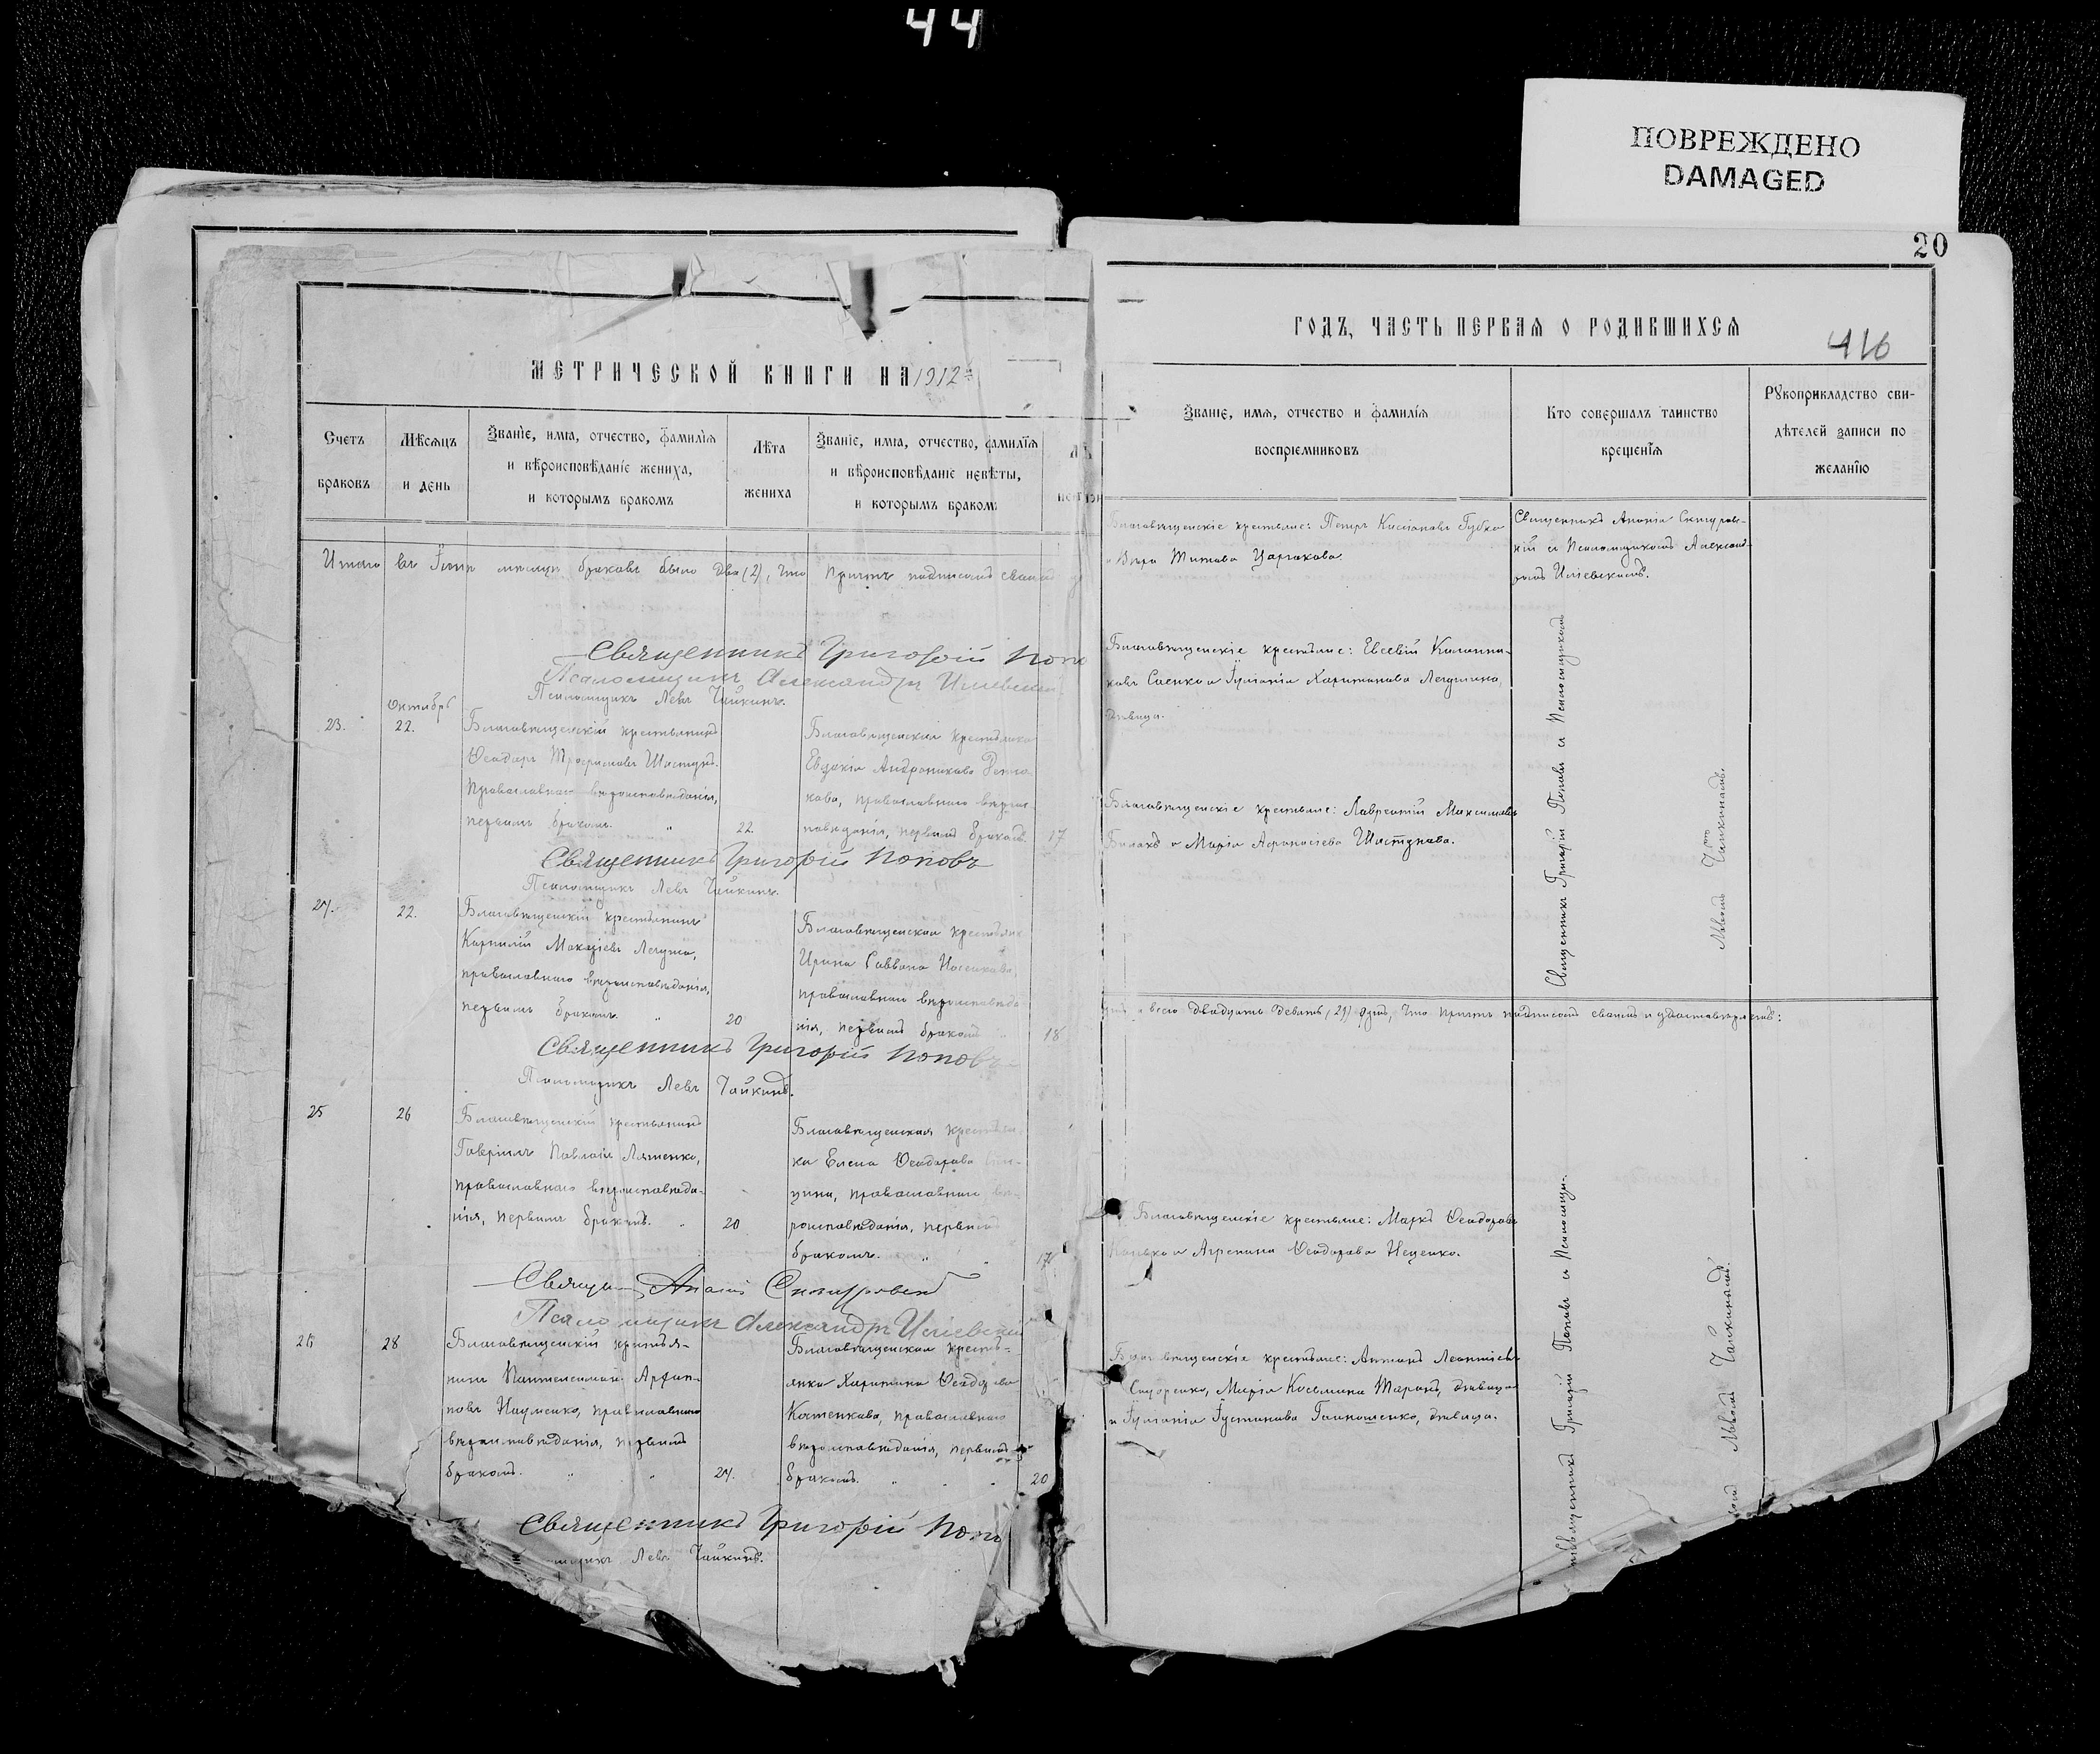 44
ПОВРЕЖДЕНО
DAMAGED
МЕТРИЧЕСКОЙ КНИГИ НА 1912
Счетъ
браковъ
Мѣсяцъ
и день
Званіе, имя, отчество, фамилія
и вѣроисповѣданіе жениха,
и которымъ бракомъ
Лѣта
жениха
Званіе, имя, отчество, фамилія
и вѣроисповѣданіе невѣсты,
и которымъ бракомъ
Итого въ мѣсяцѣ браковъ было два (2), что причтъ подписомъ своимъ
Священникъ Григорій Поповъ
Псаломщикъ Александръ Иліевскій
Псаломщикъ Левъ Чайкинъ.
Октябрь
23.
22.
Благовѣщенскій крестьянинъ
Ѳеодоръ Трофимовъ Шастунъ,
православнаго вѣроисповѣданія,
первымъ бракомъ. "
22.
Благовѣщенская крестьянка
Евдокія Андроникова
кова, православнаго вѣроис-
повѣданія, первымъ бракомъ
17
Священникъ Григорій Поповъ
Псаломщикъ Левъ Чайкинъ.
24.
22.
Благовѣщенскій крестьянинъ
Корнилій Макаріевъ Легуша,
православнаго вѣроисповѣданія,
первымъ бракомъ. "
20
Благовѣщенская крестьянка
Ирина Саввина Носенкова,
православнаго вѣроисповѣда-
нія, первымъ бракомъ "
18
Священникъ Григорій Поповъ
Псаломщикъ Левъ Чайкинъ.
25
26
Благовѣщенскій крестьянинъ
Гавріилъ Павловъ Ляшенко,
православнаго вѣроисповѣда-
нія, первымъ бракомъ. "
20
Благовѣщенская крестьян-
ка Елена Ѳеодорова
цина, православнаго вѣ-
роисповѣданія, первымъ
бракомъ. "
17
Священ. Ананія
Псаломщикъ Александръ Иліевскій
26
28
Благовѣщенскій крестья-
нинъ Пантелеимонъ
Науменко, православнаго
вѣроисповѣданія, первымъ
бракомъ. " "
24.
Благовѣщенская кресть-
янка Харитина Ѳеодорова
Костенкова, православнаго
вѣроисповѣданія, первымъ
бракомъ. "
20
Священникъ Григорій Поповъ
Левъ Чайкинъ.
20
ГОДЪ, ЧАСТЬ ПЕРВАЯ О РОДИВШИХСЯ
416
Званіе, имя, отчество и фамилія
воспріемниковъ
Кто совершалъ таинство
крещенія
Рукоприкладство сви-
дѣтелей записи по
желанію
Благовѣщенскіе крестьяне: Петръ Кассіановъ Губко
и Вѣра Титова Царгакова
Священникъ Ананія
съ Псаломщикомъ Александ-
ромъ Иліевскимъ.
Благовѣщенскіе крестьяне: Евсевій
ковъ Саенко и Іуліанія Харитонова
дѣвица.
Благовѣщенскіе крестьяне: Лаврентій Максимовъ
Билакъ и Марія Аѳанасіева Шастунова.
Священникъ Григорій Поповъ съ Псаломщикомъ
Львомъ Чайкинымъ.
и всего двадцать девять (29) душъ, что причтъ подписомъ своимъ и удостовѣряетъ:
Благовѣщенскіе крестьяне: Маркъ Ѳеодоровъ
и Агрепина Ѳеодорова Ищенко.
Благовѣщенскіе крестьяне: Антонъ Леонтіевъ
Сидоренко, Марія Косьмина Таранъ, дѣвица
и Іуліанія Іустинова дѣвица.
Священникъ Григорій Поповъ съ Псаломщи-
комъ Львомъ Чайкинымъ.